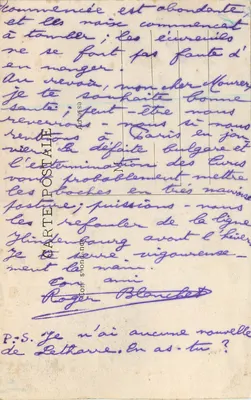 commencée est abondante
et les noix commencent
à tomber ; les écureuils
ne se font pas faute d'
en manger.
Au revoir, mon cher Maurer
Je te souhaite bonne
santé ; peut-être nous
reverrons - si nous
rentrons à Paris en jan
vier. la défaite bulgare et
des turcs
vont probablement mettre
les boches en très mauvaise
posture ; puissions-nous
les refouler de la ligne
Hindenbourg avant l'hiver
Je te serre vigoureuse-
ment la main.
ton ami
Roger Blanchet
P.S. Je n'ai aucune nouvelle
de En as-tu ?
CARTE POSTALE